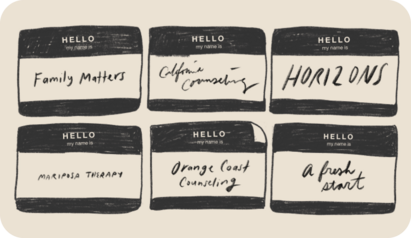 HELLO
my name is
Family Matters
HELLO
my name is
California
Counseling
HELLO
my name is
HORIZONS
HELLO
my name is
MARIPOSA THERAPY
HELLO
my name is
Orange Coast
Counseling
HELLO
my name is
a fresh
start